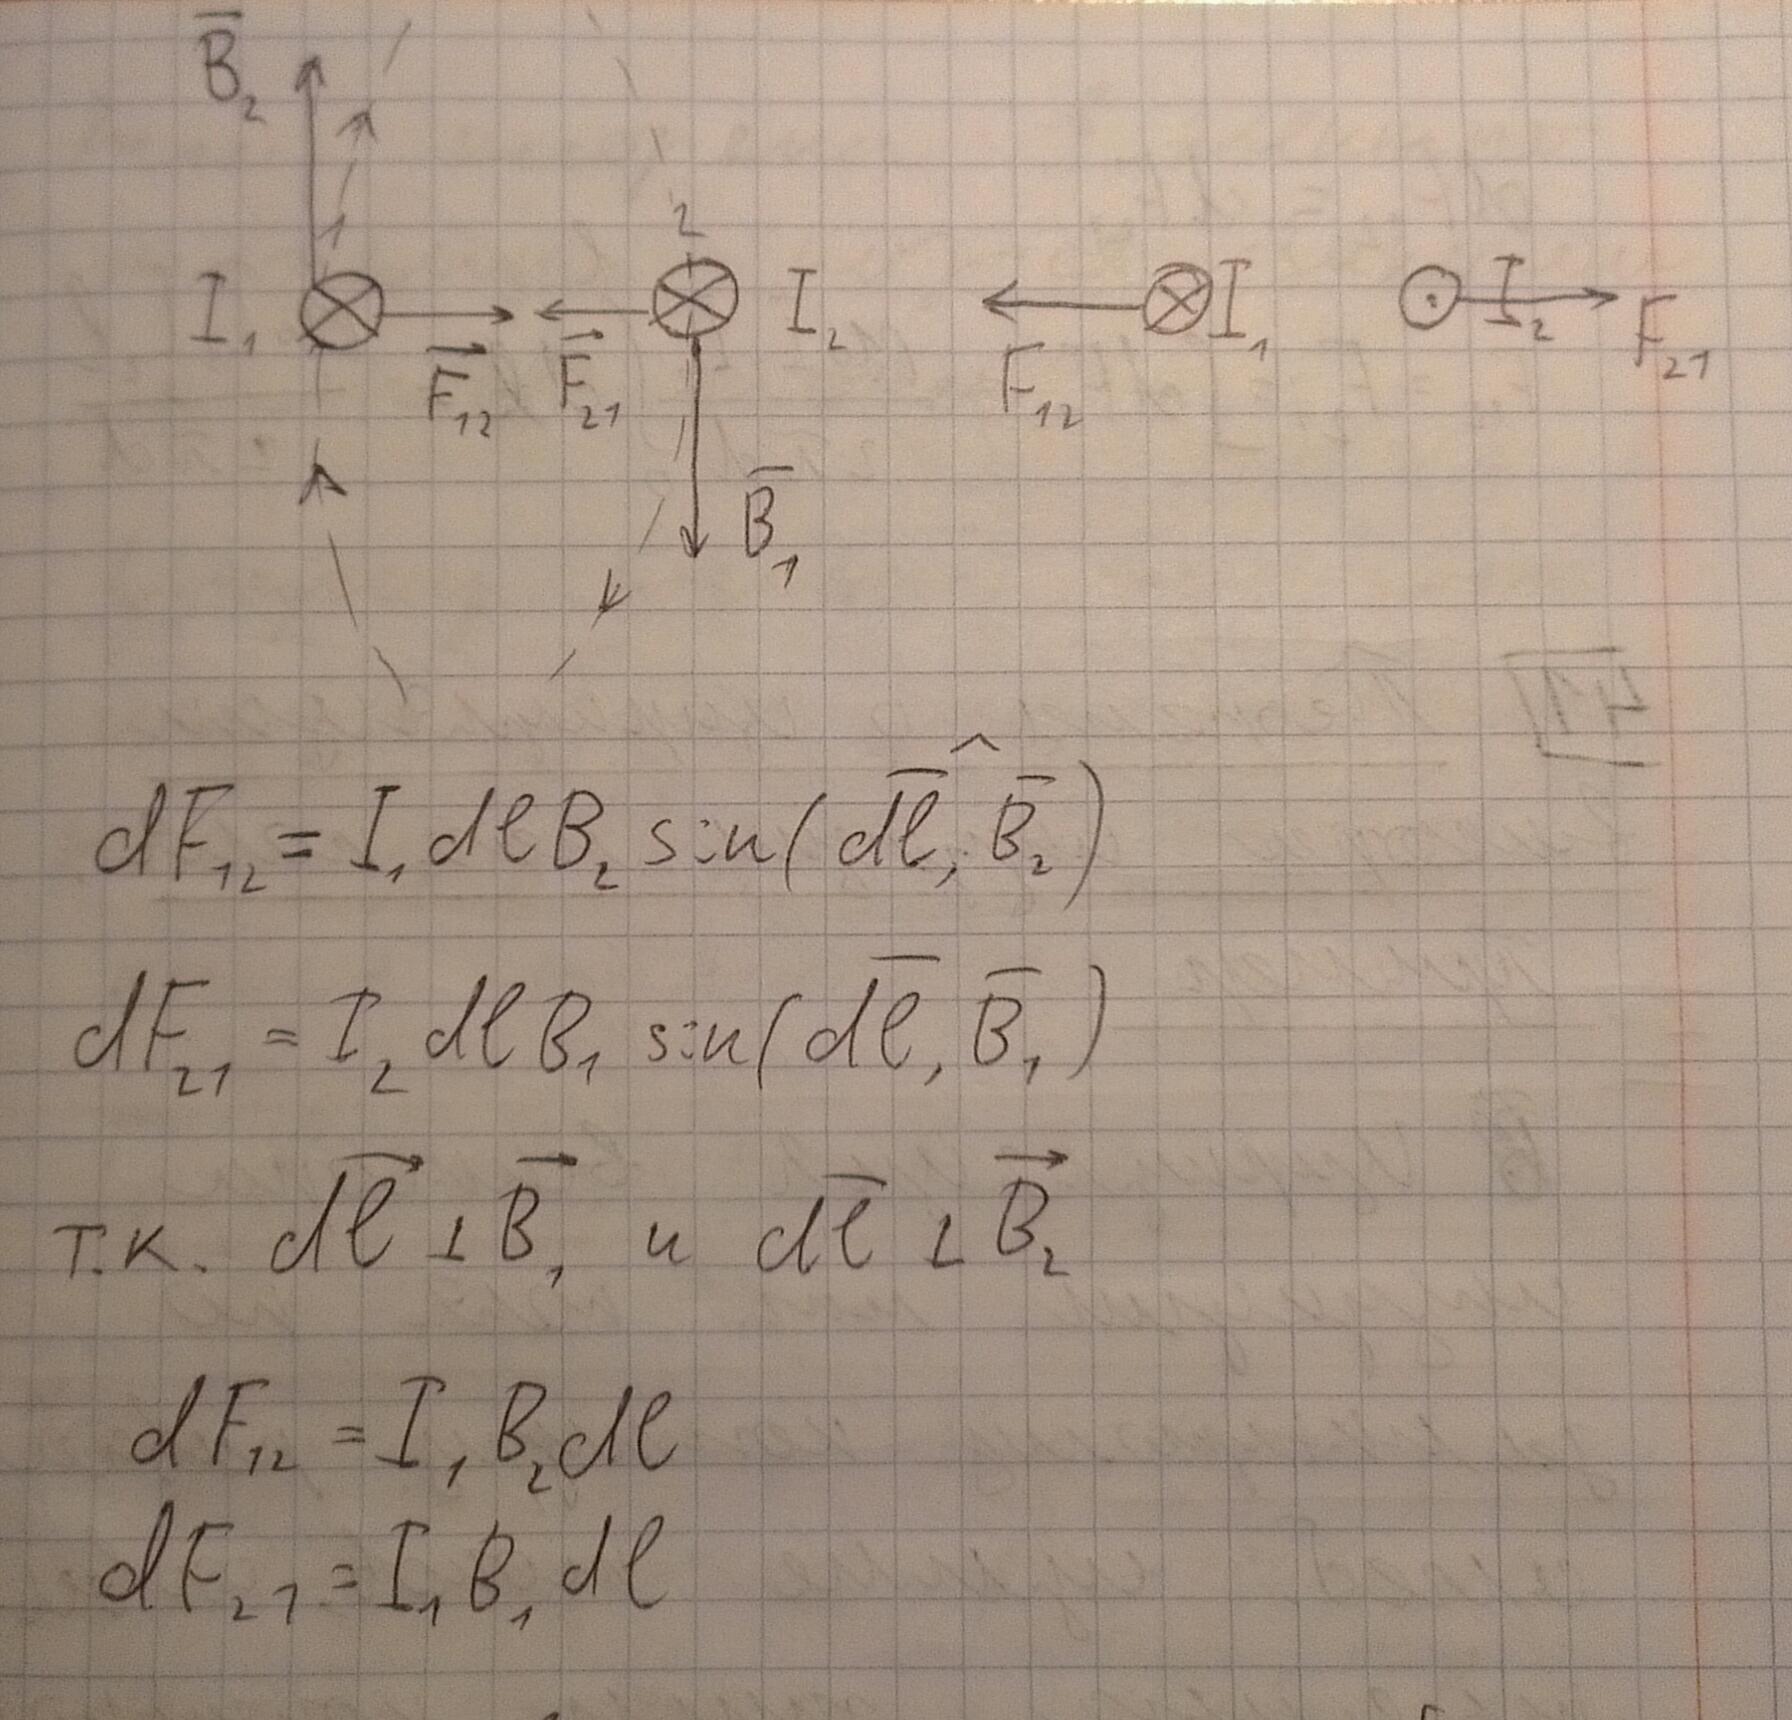 B̅₂
1 2
I₁ I₂ I₁ I₂
F⃗₁₂ F⃗₂₁ F₁₂ F₂₁
B̅₁
dF₁₂ = I₁ dℓ B₂ sin(d̅ℓ̅,^ B̅₂)
dF₂₁ = I₂ dℓ B₁ sin(d̅ℓ̅, B̅₁)
т.к. dℓ⃗ ⊥ B⃗₁ и d̅ℓ̅ ⊥ B⃗₂
dF₁₂ = I₁ B₂ dℓ
dF₂₁ = I₁ B₁ dℓ